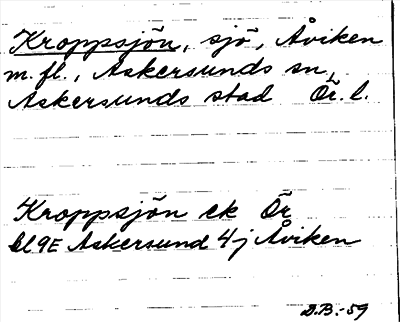 Kroppsjön, sjö, Åviken
m.fl., Askersunds sn,
Askersunds stad Ör. l.
Kroppsjön ek Ör
bl 9E Askersund 4j Åviken
D.B.-59